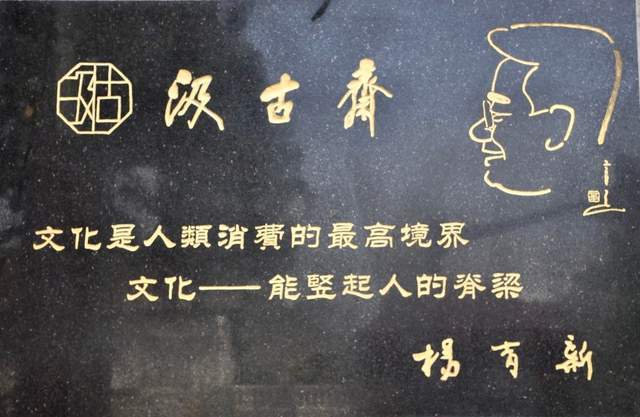 汲古齋
文化是人類消費的最高境界
文化——能竪起人的脊梁
楊育新